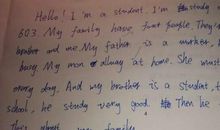 Hello! I'm a student. I'm study
603. My family have four people. They
brother and me. My father is a worker,
busy. My mon alway at home. She must
every day. And my brother is a student,
school, he study very good. Then he
They about my family